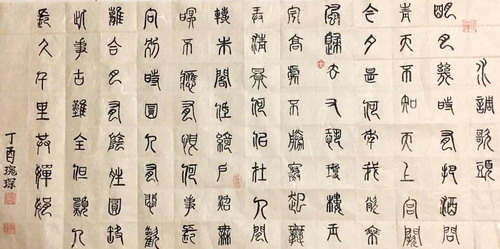 水調歌頭
明月幾時有把酒問
青天不知天上宮闕
今夕是何年我欲乘
風歸去又恐瓊樓玉
宇高處不勝寒起舞
弄清影何似在人間
轉朱閣低綺戶照無
眠不應有恨何事長
向別時圓人有悲歡
離合月有陰晴圓缺
此事古難全但願人
長久千里共嬋娟
丁酉